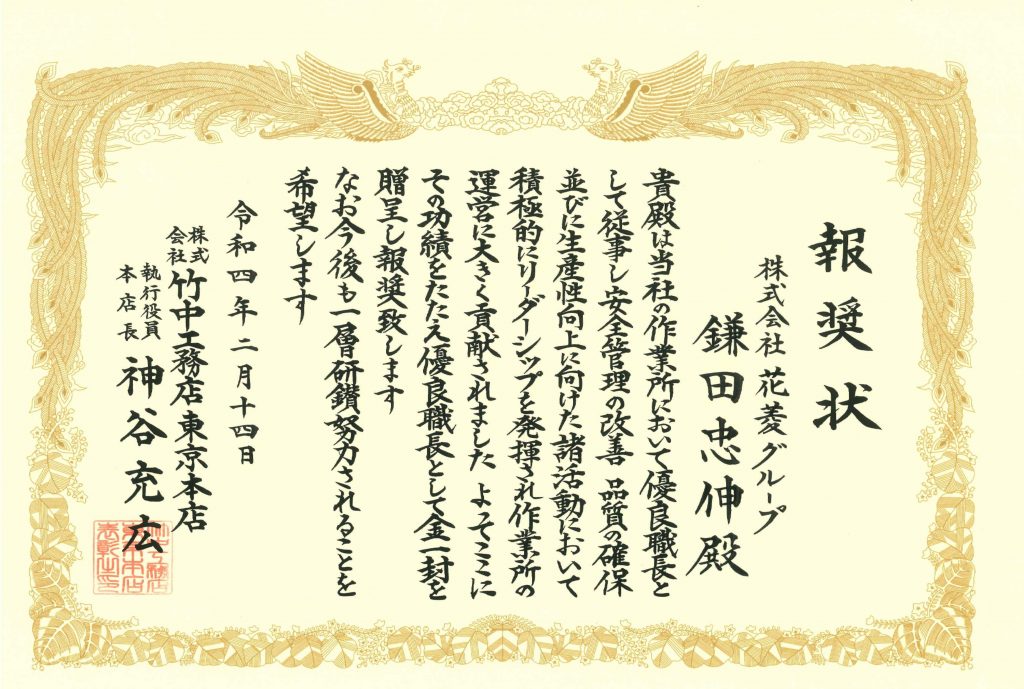 報奨状
株式会社 花菱グループ
鎌田忠伸殿
貴殿は当社の作業所において優良職長と
して従事し安全管理の改善 品質の確保
並びに生産性向上に向けた諸活動において
積極的にリーダーシップを発揮され作業所の
運営に大きく貢献されました よってここに
その功績をたたえ優良職長として金一封を
贈呈し報奨致します
なお今後も一層研鑽努力されることを
希望します
令和四年二月十四日
株式会社 竹中工務店 東京本店
執行役員 本店長 神谷充広